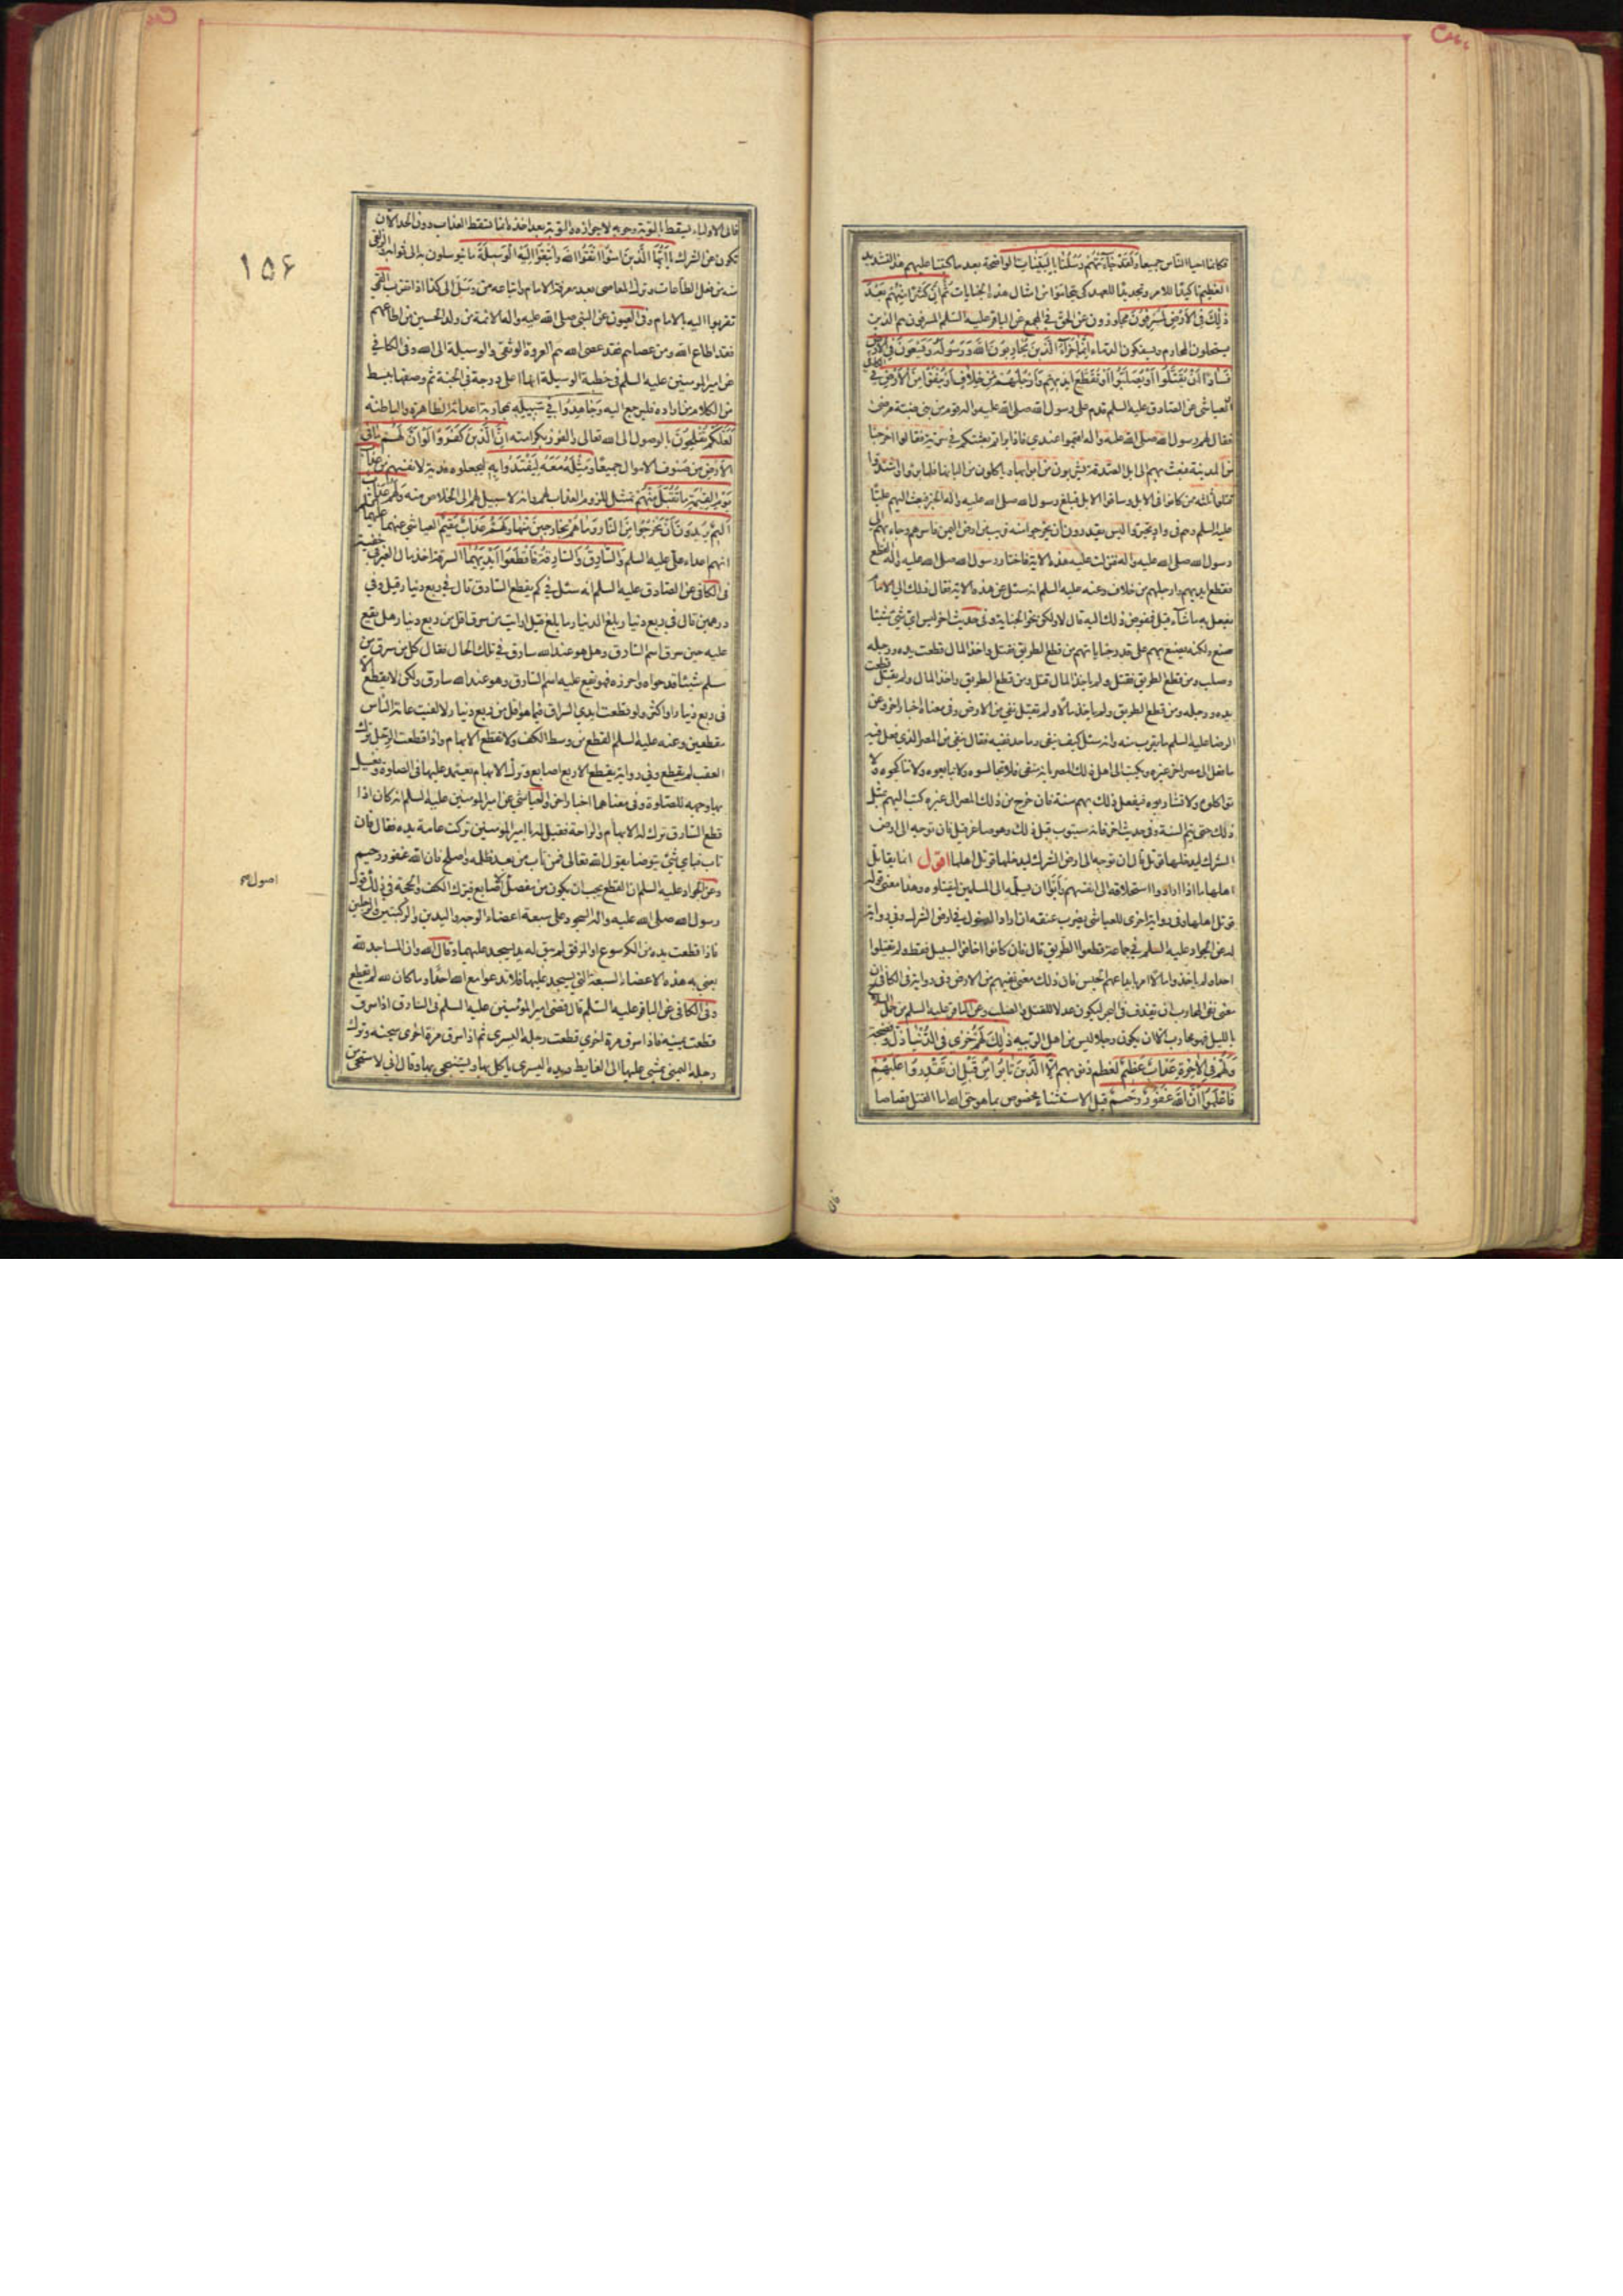 فكانما احيا الناس جميعا ولقد جاءتهم رسلنا بالبينات بالواضحة بعد ما كتبنا عليهم هذا التشديد
العظيم تاكيدا للامر وتجديدا للعهد كي يتحاموا عن امثال هذه الجنايات ثم ان كثيرا منهم بعد
ذلك في الارض لمسرفون مجاوزون عن الحق في المجمع عن الباقر عليه السلم المسرفون هم الذين
يستحلون المحارم ويسفكون الدماء انما جزاء الذين يحاربون الله ورسوله ويسعون في الارض
فسادا ان يقتلوا او يصلبوا او تقطع ايديهم وارجلهم من خلاف او ينفوا من الارض في
العياشي عن الصادق عليه السلم قدم على رسول الله صلى الله عليه واله قوم من بني ضبة مرضى
فقال لهم رسول الله صلى الله عليه واله اقيموا عندي فاذا براتم بعثتكم في سرية فقالوا اخرجنا
من المدينة فبعث بهم الى ابل الصدقة يشربون من ابوالها وياكلون من البانها فلما برئوا واشتدوا
قتلوا ثلثة ممن كانوا في الابل وساقوا الابل فبلغ رسول الله صلى الله عليه واله الخبر فبعث اليهم عليا
عليه السلم وهم في واد تحيروا ليس يقدرون ان يخرجوا منه قريب من ارض اليمن فاسرهم وجاء بهم الى
رسول الله صلى الله عليه واله فنزلت عليه هذه الاية فاختار رسول الله صلى الله عليه واله القطع
فقطع ايديهم وارجلهم من خلاف وعنه عليه السلم انه سئل عن هذه الاية فقال ذلك الى الامام
يفعل به ما شاء قيل فمفوض ذلك اليه قال لا ولكن نحو الجناية وفي حديث اخر ليس اي شئ شاء
صنع ولكنه يصنع بهم على قدر جناياتهم من قطع الطريق فقتل واخذ المال قطعت يده ورجله
وصلب ومن قطع الطريق فقتل ولم ياخذ المال قتل ومن قطع الطريق واخذ المال ولم يقتل قطعت
يده ورجله ومن قطع الطريق ولم ياخذ مالا ولم يقتل نفي من الارض وفي معناه اخبار اخر وعن
الرضا عليه السلم ما يقرب منه وانه سئل كيف ينفى وما حد نفيه فقال ينفى من المصر الذي فعل فيه
ما فعل الى مصر اخر غيره ويكتب الى اهل ذلك المصر بانه منفي فلا تجالسوه ولا تبايعوه ولا تناكحوه ولا
تواكلوه ولا تشاربوه فيفعل ذلك بهم سنة فان خرج من ذلك المصر الى غيره كتب اليهم بمثل
ذلك حتى يتم السنة وفي حديث اخر فانه سيتوب قبل ذلك وهو صاغر قيل فان توجه الى ارض
الشرك ليدخلها قال ان توجه الى ارض الشرك ليدخلها قوتل اهلها اقول انما يقاتل
اهلها اذا ارادوا استلحاقه الى انفسهم وابوا ان يسلموه الى المسلمين ليقتلوه وهذا معنى قوله
قوتل اهلها وفي رواية اخرى للعياشي يضرب عنقه ان اراد الدخول في ارض الشرك وفي رواية
له عن الجواد عليه السلم في جماعة قطعوا الطريق قال فان كانوا اخافوا السبيل فقط ولم يقتلوا
احدا ولم ياخذوا مالا امر بايداعهم الحبس فان ذلك معنى نفيهم من الارض وفي رواية في الكافي ان
معنى نفي المحارب ان يقذف في البحر ليكون عدلا للقتل والصلب وعن الباقر عليه السلم من حمل السلاح
بالليل فهو محارب الا ان يكون رجلا ليس من اهل الريبة ذلك لهم خزي في الدنيا ذل وفضيحة
ولهم في الاخرة عذاب عظيم لعظم ذنوبهم الا الذين تابوا من قبل ان تقدروا عليهم
فاعلموا ان الله غفور رحيم قيل الاستثناء مخصوص بما هو حق الله اما القتل قصاصا
فان
١٥۶
فالى الاولياء يسقط بالتوبة وجوبه لا جوازه والتوبة بعد اخذه انما تسقط العذاب دون الحد الا ان
تكون عن الشرك يا ايها الذين امنوا اتقوا الله وابتغوا اليه الوسيلة ما تتوسلون به الى ثوابه والزلفى
منه من فعل الطاعات وترك المعاصي بعد معرفة الامام واتباعه من وسل الى كذا اذا تقرب القمي
تقربوا اليه بالامام وفي العيون عن النبي صلى الله عليه واله الائمة من ولد الحسين من اطاعهم
فقد اطاع الله ومن عصاهم فقد عصى الله هم العروة الوثقى والوسيلة الى الله وفي الكافي
عن امير المومنين عليه السلم في خطبة الوسيلة انها اعلى درجة في الجنة ثم وصفها ببسط
من الكلام من اراده فليرجع اليه وجاهدوا في سبيله بمحاربة اعدائه الظاهرة والباطنة
لعلكم تفلحون بالوصول الى الله تعالى والفوز بكرامته ان الذين كفروا لو ان لهم ما في
الارض من صنوف الاموال جميعا ومثله معه ليفتدوا به ليجعلوه فدية لانفسهم من عذاب
يوم القيمة ما تقبل منهم تمثيل للزوم العذاب لهم وانه لا سبيل لهم الى الخلاص منه ولهم عذاب
اليم يريدون ان يخرجوا من النار وما هم بخارجين منها ولهم عذاب مقيم العياشي عنهما عليهما السلم
انهم اعداء علي عليه السلم والسارق والسارقة فاقطعوا ايديهما السرقة اخذ مال الغير في خفية
في الكافي عن الصادق عليه السلم انه سئل في كم يقطع السارق قال في ربع دينار قيل وفي
درهمين قال في ربع دينار بلغ الدينار ما بلغ قيل ارايت من سرق اقل من ربع دينار هل يقع
عليه حين سرق اسم السارق وهل هو عند الله سارق في تلك الحال فقال كل من سرق من
مسلم شيئا قد حواه واحرزه فهو يقع عليه اسم السارق وهو عند الله سارق ولكن لا يقطع الا
في ربع دينار او اكثر ولو قطعت ايدي السراق فيما هو اقل من ربع دينار لالفيت عامة الناس
مقطعين وعنه عليه السلم القطع من وسط الكف ولا تقطع الابهام واذا قطعت الرجل ترك
العقب لم يقطع وفي رواية يقطع الاربع اصابع وترك الابهام يعتمد عليها في الصلوة ويغسل
بها وجهه للصلوة وفي معناهما اخبار اخر والعياشي عن امير المومنين عليه السلم انه كان اذا
قطع السارق ترك له الابهام والراحة فقيل له يا امير المومنين تركت عامة يده فقال فان
تاب فباي شئ يتوضا يقول الله تعالى فمن تاب من بعد ظلمه واصلح فان الله غفور رحيم
وعن الجواد عليه السلم ان القطع يجب ان يكون من مفصل الاصابع فيترك الكف والحجة في ذلك قول
رسول الله صلى الله عليه واله السجود على سبعة اعضاء الوجه واليدين والركبتين والرجلين
فاذا قطعت يده من الكرسوع او المرفق لم يبق له يد يسجد عليها وقال الله وان المساجد لله
يعني به هذه الاعضاء السبعة التي يسجد عليها فلا تدعوا مع الله احدا وما كان لله لم يقطع
وفي الكافي عن الباقر عليه السلم قال قضى امير المؤمنين عليه السلم في السارق اذا سرق
قطعت يمينه فاذا سرق مرة اخرى قطعت رجله اليسرى ثم اذا سرق مرة اخرى سجنه وترك
رجله اليمنى يمشي عليها الى الغايط ويده اليسرى ياكل بها ويستنجي بها وقال اني لاستحيي من